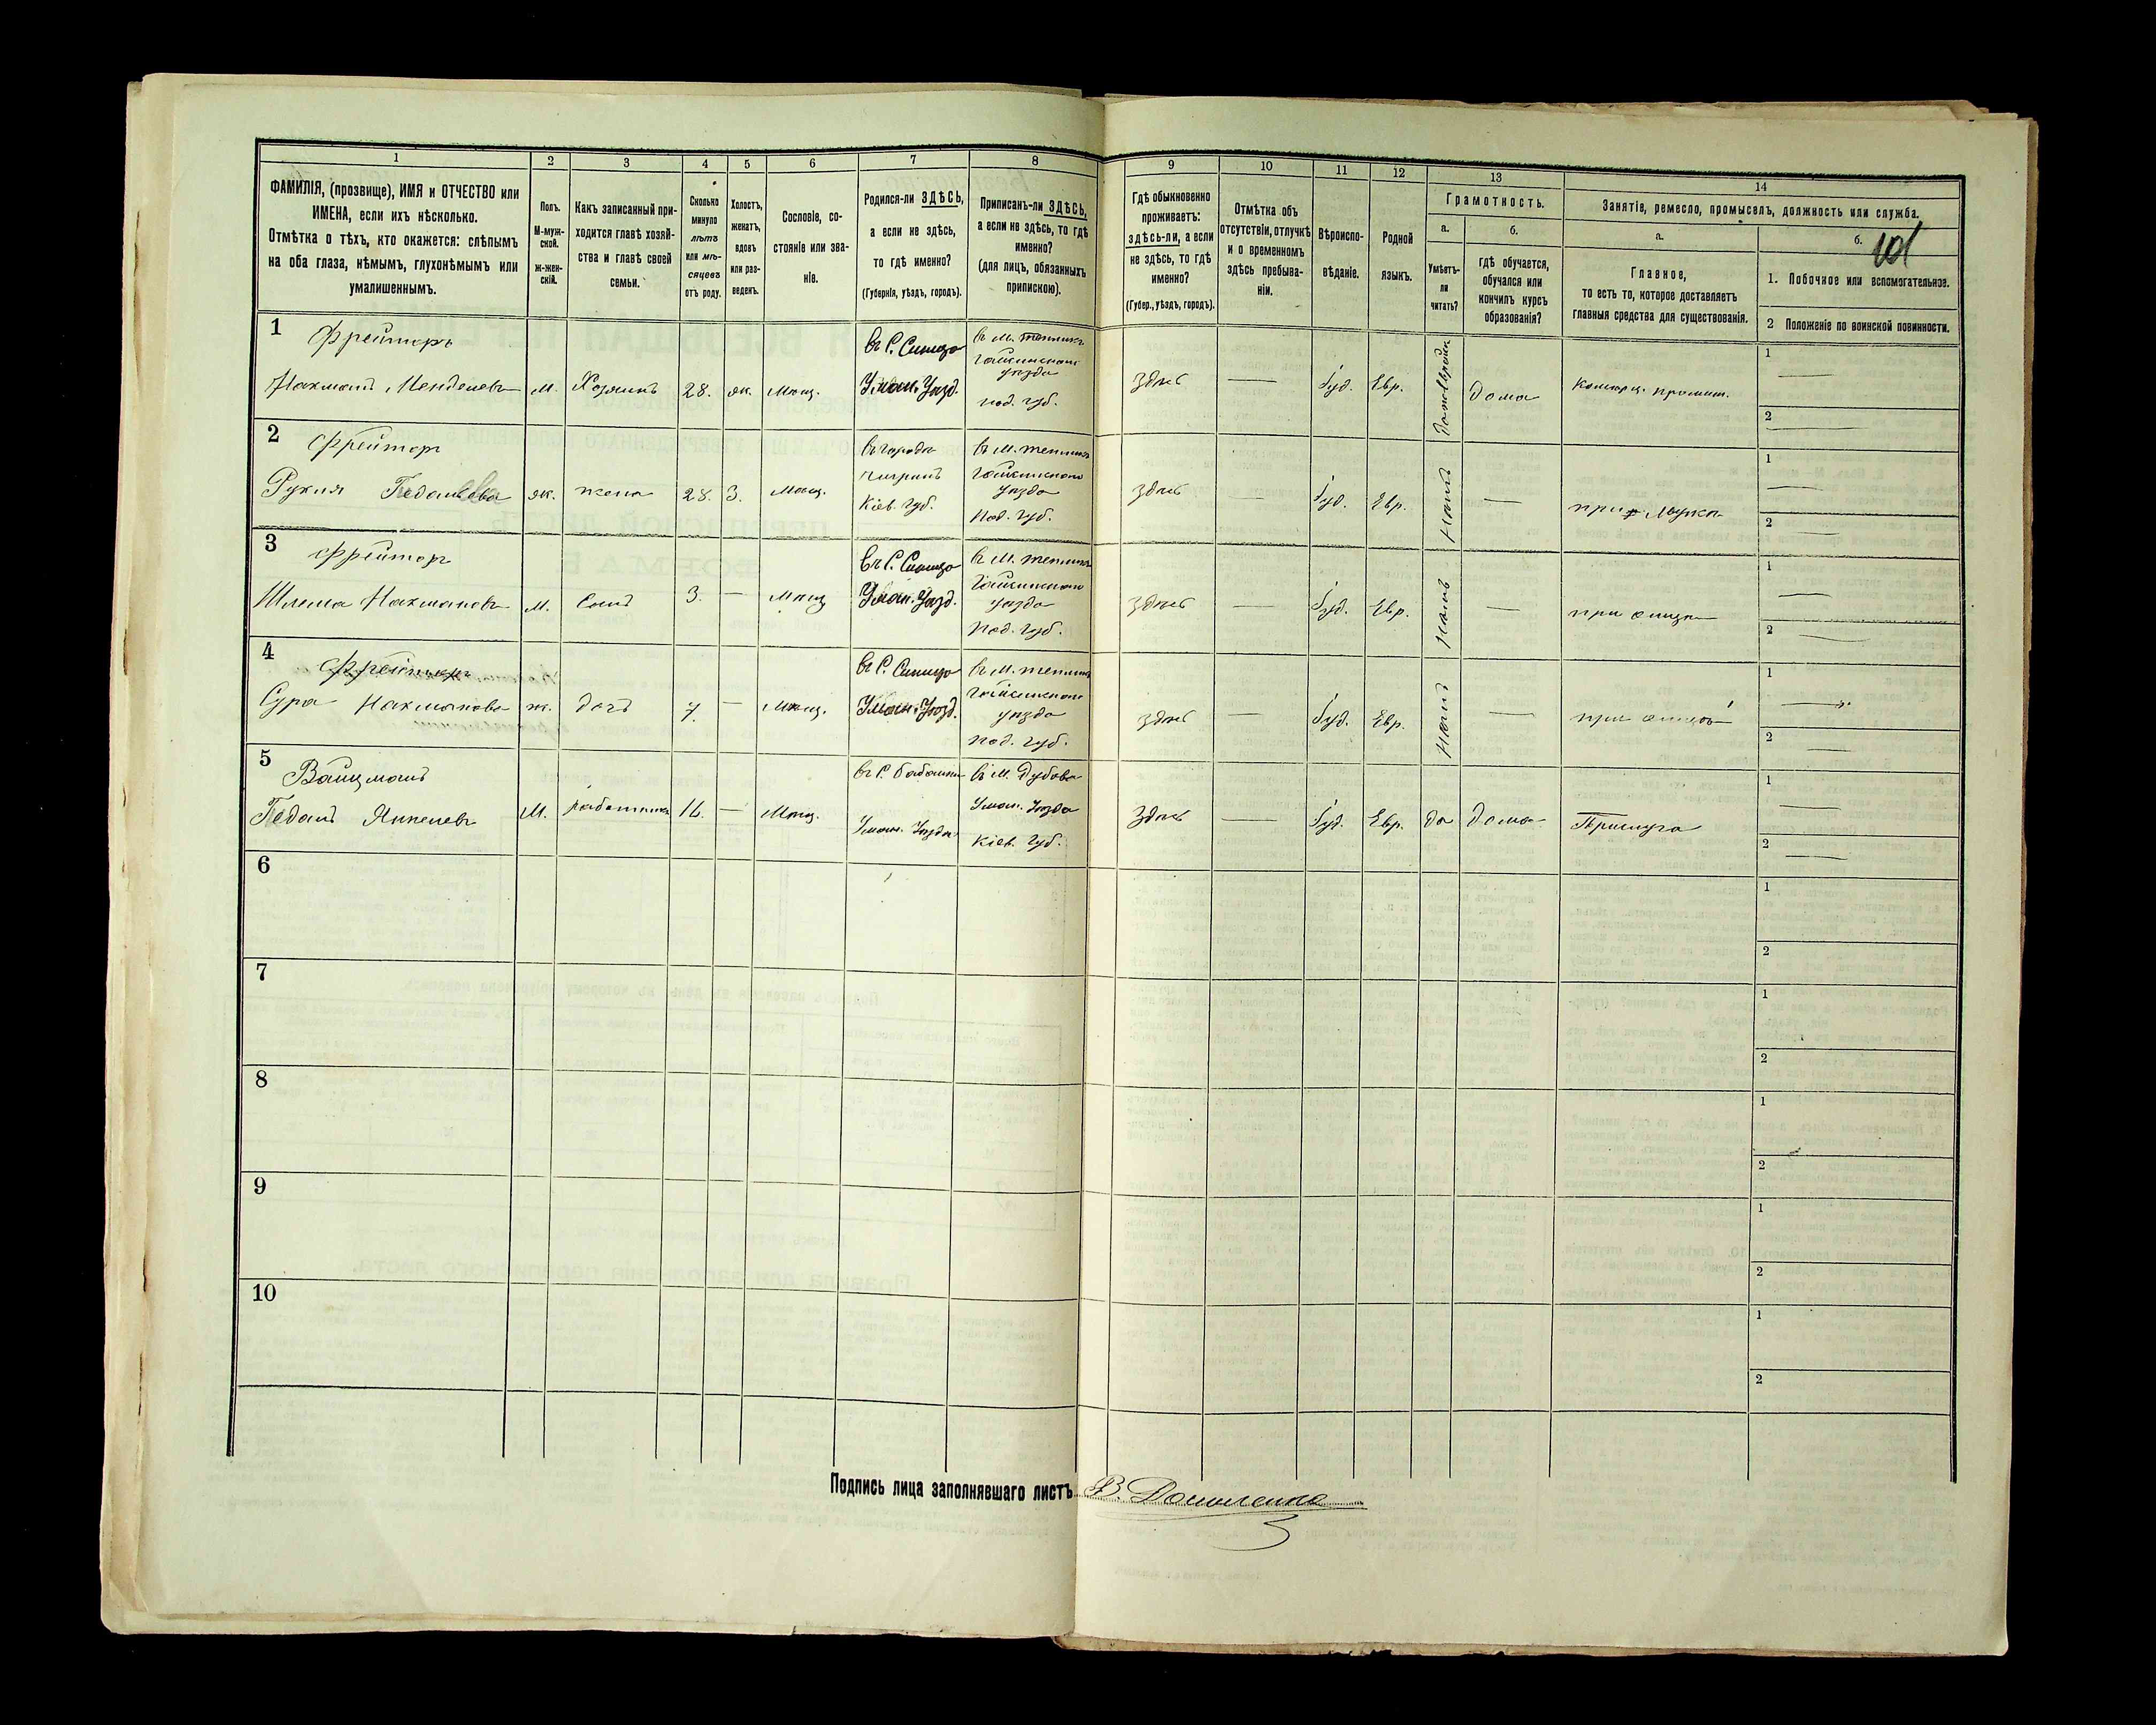 1
2
3
4
5
6
7
8
9
10
11
12
13
14
ФАМИЛІЯ, (прозвище), ИМЯ и ОТЧЕСТВО или
ИМЕНА, если ихъ нѣсколько.
Отмѣтка о тѣхъ, кто окажется: слѣпымъ
на оба глаза, нѣмымъ, глухонѣмымъ или
умалишеннымъ.
Полъ.
М-муж-
ской.
ж-жен-
скій.
Какъ записанный при-
ходится главѣ хозяй-
ства и главѣ своей
семьи.
Сколько
минуло
лѣтъ
или мѣ-
сяцевъ
отъ роду.
Холостъ,
женатъ,
вдовъ
или раз-
веденъ.
Сословіе, со-
стояніе или зва-
ніе.
Родился-ли ЗДѢСЬ,
а если не здѣсь,
то гдѣ именно?
(Губернія, уѣздъ, городъ).
Приписанъ-ли ЗДѢСЬ,
а если не здѣсь, то гдѣ
именно?
(для лицъ, обязанныхъ
припискою).
Гдѣ обыкновенно
проживаетъ:
здѣсь-ли, а если
не здѣсь, то гдѣ
именно?
(Губер., уѣздъ, городъ).
Отмѣтка объ
отсутствіи, отлучкѣ
и о временномъ
здѣсь пребыва-
ніи.
Вѣроиспо-
вѣданіе.
Родной
языкъ.
Грамотность.
а.
Умѣетъ-
ли
читать?
б.
гдѣ обучается,
обучался или
кончилъ курсъ
образованія?
Занятіе, ремесло, промыселъ, должность или служба.
а.
Главное,
то есть то, которое доставляетъ
главныя средства для существованія.
б.
1. Побочное или вспомогательное.
2 Положеніе по воинской повинности.
1
Фрейторъ
Нахманъ Менделевъ
М.
Хозяинъ
28.
ж.
Мѣщ.
въ С. Синица
Уман. Уѣзд.
въ М. Тепликъ
Гайсинскаго
уѣзда
под. губ.
здѣсь
Іуд.
Евр.
Дома
1
2
2
Фрейторъ
Рухля
ж.
жена
28.
З.
Мѣщ.
въ городѣ
Кіев. губ.
въ М. Тепликъ
Гайсинскаго
уѣзда
Под. губ.
здѣсь
Іуд.
Евр.
Нѣтъ
при мужѣ
1
2
3
Фрейторъ
Шлема Нахмановъ
М.
Сынъ
3.
Мѣщ
въ С. Синица
Уман. Уѣзд.
въ М. Тепликъ
Гайсинскаго
уѣзда
Под. губ.
здѣсь
Іуд.
Евр.
Нѣтъ
при отцѣ
1
2
4
Фрейторъ
Сура Нахманова
ж.
дочь
7.
Мѣщ.
въ С. Синица
Уман. Уѣзд.
въ М. Тепликъ
Гайсинскаго
уѣзда
под. губ.
здѣсь
Іуд.
Евр.
Нѣтъ
при отцѣ
1
2
5
Вайцманъ
Гедаль Янкелевъ
М.
работникъ
16.
Мѣщ.
въ С. Бабанка
Уман. Уѣзда
въ М. Дубова
Уман. Уѣзда
Кіев. Губ.
здѣсь
Іуд.
Евр.
да
Дома
Прислуга
1
2
6
1
2
7
1
2
8
1
2
9
1
2
10
1
2
Подпись лица заполнявшаго листъ